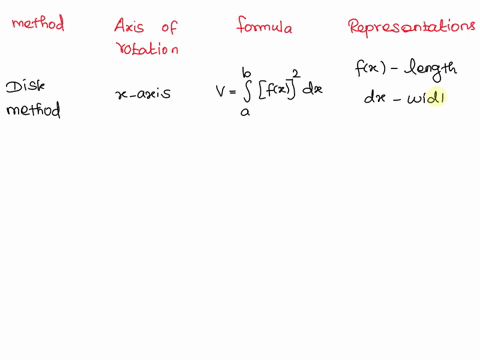 method Axis of rotation formula Representations
Disk method x-axis V = ∫_a^b [f(x)]^2 dx f(x) - length
dx - wid